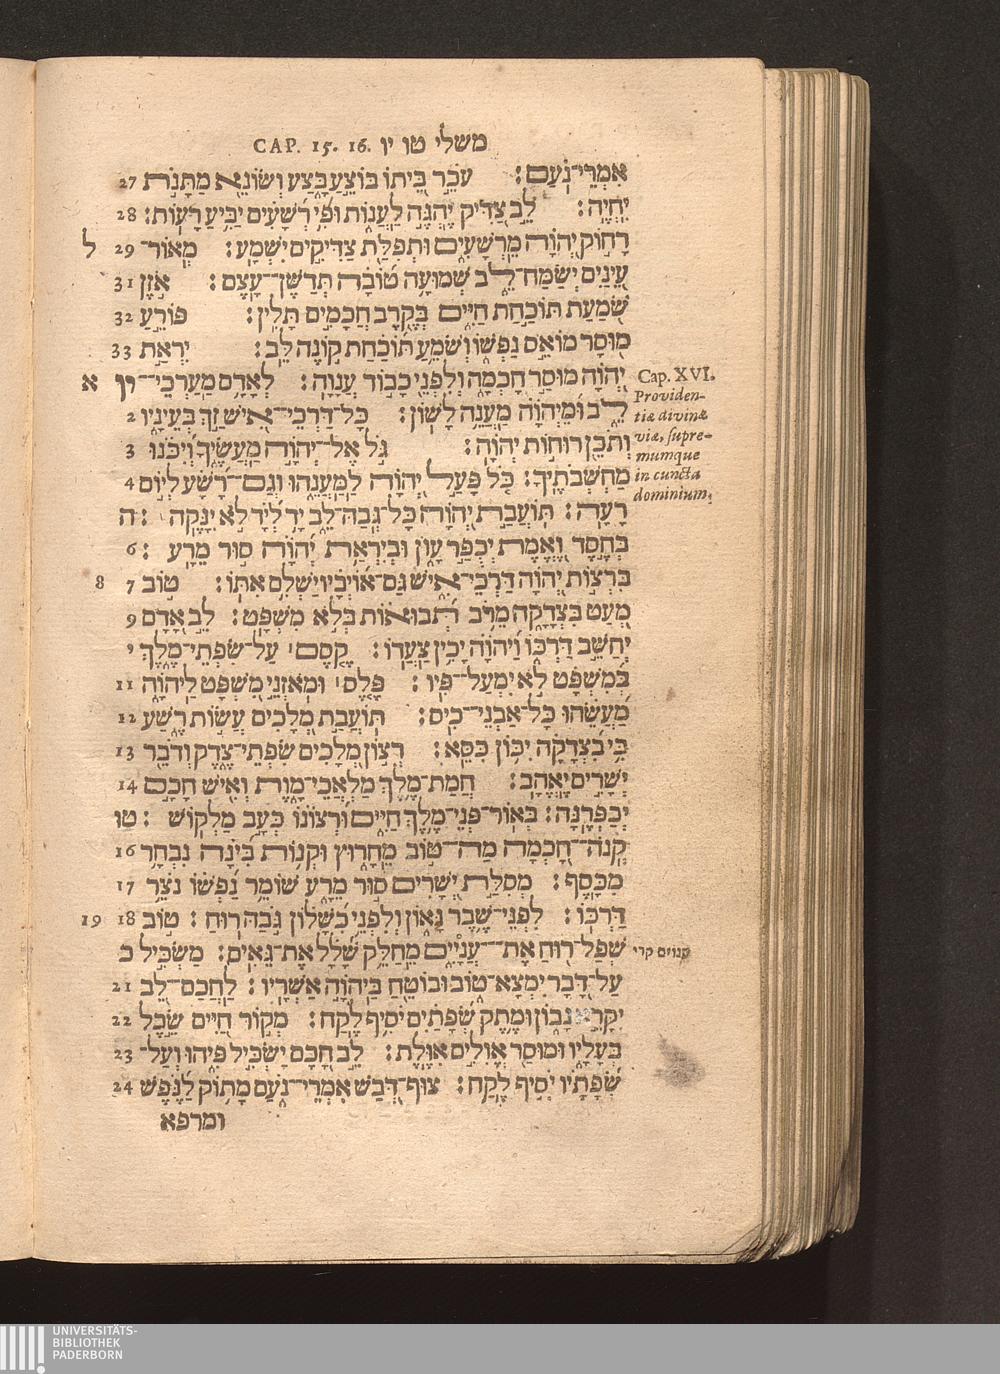 CAP. 15. 16. משלי טו יו
אִמְרֵי־נֹֽעַם׃ עֹכֵ֣ר בֵּ֭יתוֹ בּוֹצֵ֣עַ בָּ֑צַע וְשׂוֹנֵ֖א מַתָּנֹ֣ת 27
יִחְיֶֽה׃ לֵ֣ב צַ֭דִּיק יֶהְגֶּ֣ה לַעֲנ֑וֹת וּפִ֥י רְ֝שָׁעִ֗ים יַבִּ֥יעַ רָעֽוֹת׃ 28
רָח֣וֹק יְ֭הוָה מֵרְשָׁעִ֑ים וּתְפִלַּ֖ת צַדִּיקִ֣ים יִשְׁמָֽע׃ מְאוֹר־ 29 ל
עֵ֭ינַיִם יְשַׂמַּֽח־לֵ֑ב שְׁמוּעָ֥ה ט֝וֹבָ֗ה תְּדַשֶּׁן־עָֽצֶם׃ אֹ֗זֶן 31
שֹׁ֭מַעַת תּוֹכַ֣חַת חַיִּ֑ים בְּקֶ֖רֶב חֲכָמִ֣ים תָּלִֽין׃ פּוֹרֵ֣עַ 32
מ֭וּסָר מוֹאֵ֣ס נַפְשׁ֑וֹ וְשׁוֹמֵ֥עַ תּ֝וֹכַ֗חַת ק֣וֹנֶה לֵּֽב׃ יִרְאַ֣ת 33
יְ֭הוָה מוּסַ֣ר חָכְמָ֑ה וְלִפְנֵ֖י כָב֣וֹד עֲנָוָֽה׃ לְאָדָ֥ם מַֽעַרְכֵי־ יו א
לֵ֑ב וּ֝מֵיְהוָ֗ה מַעֲנֵ֥ה לָשֽׁוֹן׃ כָּֽל־דַּרְכֵי־אִ֭ישׁ זַ֣ךְ בְּעֵינָ֑יו 2
וְתֹכֵ֖ן רוּח֣וֹת יְהוָֽה׃ גֹּ֣ל אֶל־יְהוָ֣ה מַעֲשֶׂ֑יךָ וְ֝יִכֹּ֗נוּ 3
מַחְשְׁבֹתֶֽיךָ׃ כֹּ֤ל פָּעַ֣ל יְ֭הוָה לַֽמַּעֲנֵ֑הוּ וְגַם־רָ֝שָׁ֗ע לְי֣וֹם 4
רָעָֽה׃ תּוֹעֲבַ֣ת יְ֭הוָה כָּל־גְּבַהּ־לֵ֑ב יָ֥ד לְ֝יָ֗ד לֹ֣א יִנָּקֶֽה׃ ה
בְּחֶ֣סֶד וֶ֭אֱמֶת יְכֻפַּ֣ר עָוֺ֑ן וּבְיִרְאַ֥ת יְ֝הוָ֗ה ס֣וּר מֵרָֽע׃ 6
בִּרְצ֣וֹת יְ֭הוָה דַּרְכֵי־אִ֑ישׁ גַּם־א֝וֹיְבָ֗יו יַשְׁלִ֥ם אִתּֽוֹ׃ ט֣וֹב 7 8
מְ֭עַט בִּצְדָקָ֑ה מֵרֹ֥ב תְּ֝בוּא֗וֹת בְּלֹ֣א מִשְׁפָּֽט׃ לֵ֣ב אָ֭דָם 9
יְחַשֵּׁ֣ב דַּרְכּ֑וֹ וַֽ֝יהוָ֗ה יָכִ֥ין צַעֲדֽוֹ׃ קֶ֤סֶם׀ עַל־שִׂפְתֵי־מֶ֑לֶךְ י
בְּ֝מִשְׁפָּ֗ט לֹ֣א יִמְעַל־פִּֽיו׃ פֶּ֤לֶס׀ וּמֹאזְנֵ֣י מִ֭שְׁפָּט לַֽיהוָ֑ה 11
מַ֝עֲשֵׂ֗הוּ כָּל־אַבְנֵי־כִֽיס׃ תּוֹעֲבַ֣ת מְ֭לָכִים עֲשׂ֣וֹת רֶ֑שַׁע 12
כִּ֥י בִ֝צְדָקָ֗ה יִכּ֥וֹן כִּסֵּֽא׃ רְצ֣וֹן מְ֭לָכִים שִׂפְתֵי־צֶ֑דֶק וְדֹבֵ֖ר 13
יְשָׁרִ֣ים יֶאֱהָֽב׃ חֲמַת־מֶ֥לֶךְ מַלְאֲכֵי־מָ֑וֶת וְאִ֖ישׁ חָכָ֣ם 14
יְכַפְּרֶֽנָּה׃ בְּאוֹר־פְּנֵי־מֶ֥לֶךְ חַיִּ֑ים וּ֝רְצוֹנ֗וֹ כְּעָ֣ב מַלְקֽוֹשׁ׃ טו
קְנֹה־חָכְמָ֗ה מַה־טּ֥וֹב מֵחָר֑וּץ וּקְנ֥וֹת בִּ֝ינָ֗ה נִבְחָ֥ר 16
מִכָּֽסֶף׃ מְסִלַּ֣ת יְ֭שָׁרִים ס֣וּר מֵרָ֑ע שֹׁמֵ֥ר נַ֝פְשׁ֗וֹ נֹצֵ֥ר 17
דַּרְכּֽוֹ׃ לִפְנֵי־שֶׁ֥בֶר גָּא֑וֹן וְלִפְנֵ֥י כִ֝שָּׁל֗וֹן גֹּ֣בַהּ רֽוּחַ׃ ט֣וֹב 18 19
שְׁפַל־ר֭וּחַ אֶת־עֲנָיִ֑ים מֵחַלֵּ֥ק שָׁ֝לָ֗ל אֶת־גֵּאִֽים׃ מַשְׂכִּ֣יל כ
עַל־דָּ֭בָר יִמְצָא־ט֑וֹב וּבוֹטֵ֖חַ בַּיהוָ֣ה אַשְׁרָֽיו׃ לַחֲכַם־לֵ֭ב 21
יִקָּרֵ֣א נָב֑וֹן וּמֶ֥תֶק שְׂ֝פָתַ֗יִם יֹסִ֥יף לֶֽקַח׃ מְק֣וֹר חַ֭יִּים שֵׂ֣כֶל 22
בְּעָלָ֑יו וּמוּסַ֖ר אֱוִלִ֣ים אִוֶּֽלֶת׃ לֵ֣ב חָ֭כָם יַשְׂכִּ֣יל פִּ֑יהוּ וְעַל־ 23
שְׂ֝פָתָ֗יו יֹסִ֥יף לֶֽקַח׃ צוּף־דְּ֭בַשׁ אִמְרֵי־נֹ֑עַם מָת֥וֹק לַ֝נֶּ֗פֶשׁ 24
ומרפא
Cap. XVI.
Providen-
tiæ divinæ
viæ, supre-
mumque
in cuncta
dominium.
ענוים קרי
UNIVERSITÄTS-
BIBLIOTHEK
PADERBORN